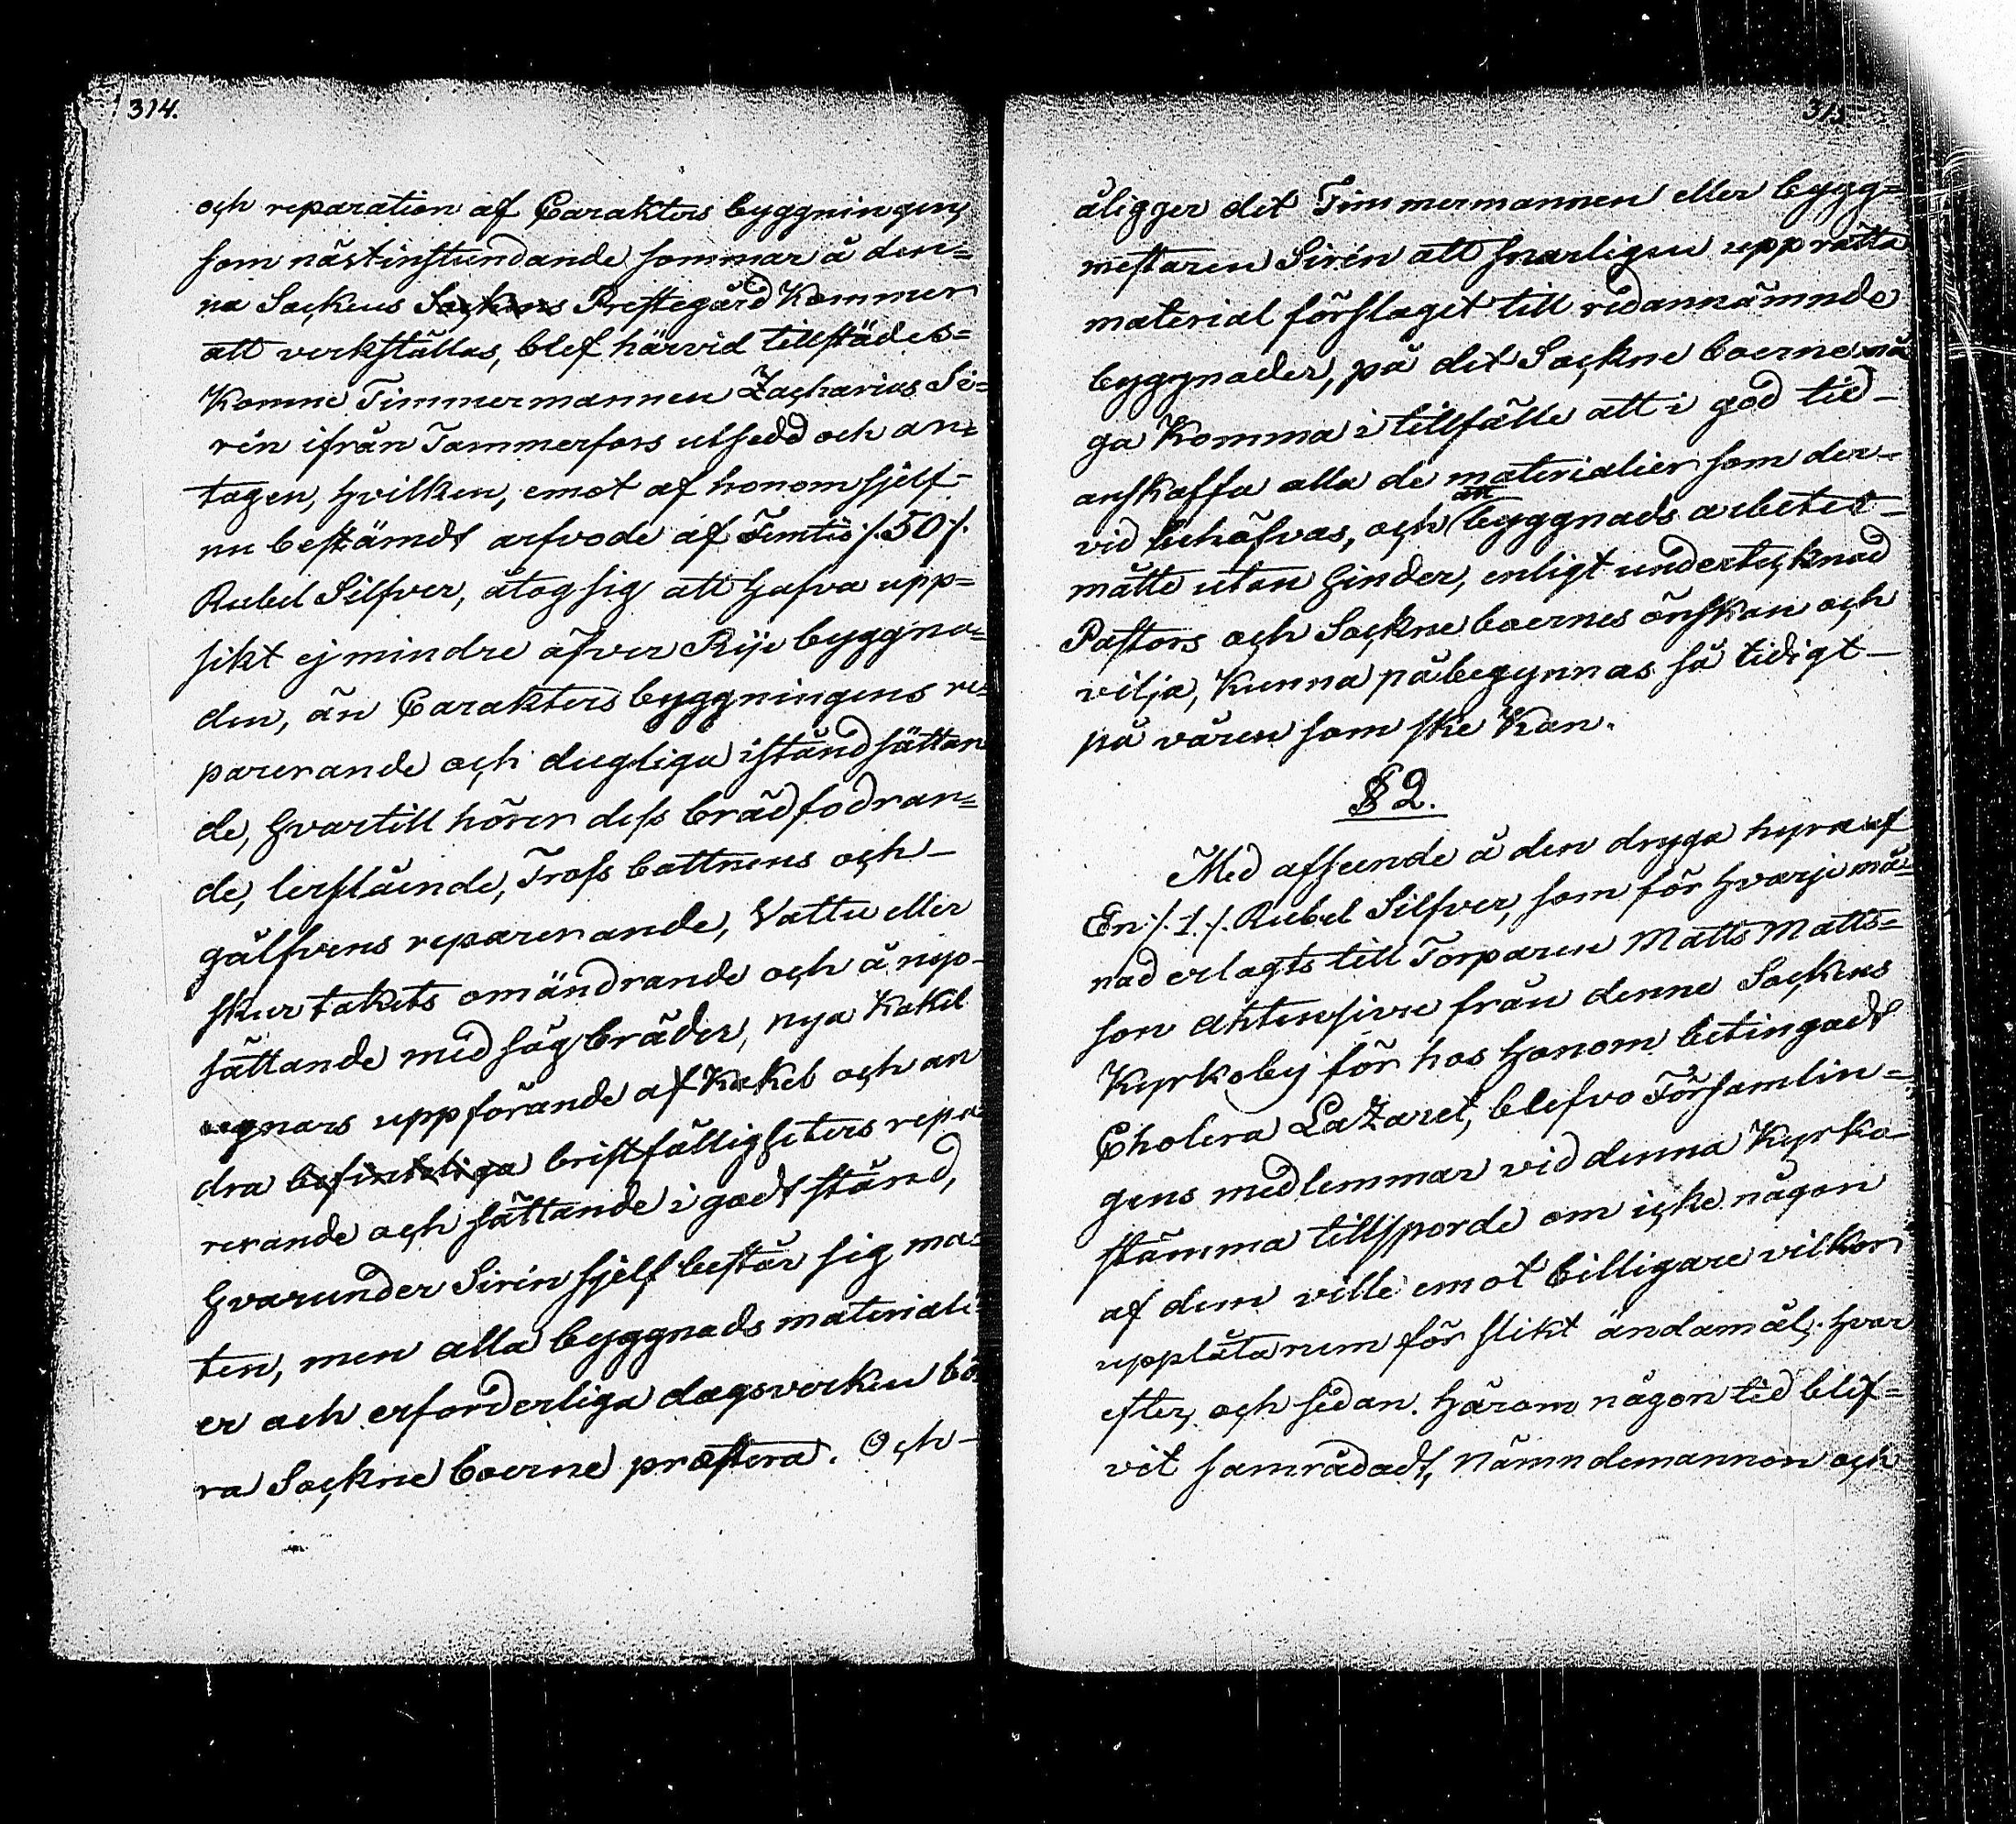 314.
och reparation af Carakters byggningen,
som nästinstundande sommar å den=
na Sockens Sockens Prestegård Kommer
att verkställas, blef härvid tillstädes=
Komne Timmermannen Zacharias Si=
rén ifrån Tammerfors utsedd och an=
tagen, hvilken, emot af honom sjelf=
nu bestämdt arfvode af Femtio /.50/.
Rubel Silfver, åtog sig att hafva upp=
sikt ej mindre öfver Rije byggna=
den, än Carakters byggningens re=
parerande och dugliga iståndsättan
de, hvartill hörer dess brädfodran=
de, lerslående, Tross bottnens och–
gålfvens reparerande, Vattu eller
skur takets omändrande och å nyo–
sättande med sågbräder, nya Kakel
ugnars uppförande af Kakel och an
dra befinteliga bristfälligheters repa
rerande och sättande i godt stånd,
hvarunder Sirén sjelf består sig ma=
ten, men alla byggnads materiali=
er och erforderliga dagsverken bö=
ra Sockne boerne præstera. Och–
315
åligger det Timmermannen eller bygg=
mestaren Sirén att snarligen upprätta
material förslaget till redannämnde
byggnader, på det Sockne boerne må
ga Komma i tillfälle att i god tid–
anskaffa alla de materialier som der=
vid behöfvas, och att byggnads arbetet–
måtte utan hinder, enligt undertecknad
Pastors och Sockne boernes önskan och
vilja, Kunna påbegynnas så tidigt–
på våren som ske Kan.
§ 2.
Med afseende å den dryga hyra af
En /.1./. Rubel Silfver, som för hvarje må=
nad erlagts till Torparen Matts Matts=
son Ahtensivre från denne Sockens
Kyrkoby för hos honom betingadt
Cholera Lazaret, blefvo Församlin=
gens medlemmar vid denna Kyrko–
stämma tillsporde om icke någon
af dem ville emot billigare vilkor
upplåta rum för slikt ändamål; hvar
efter, och sedan härom någon tid blif=
vit samrådadt, Nämndemannen och